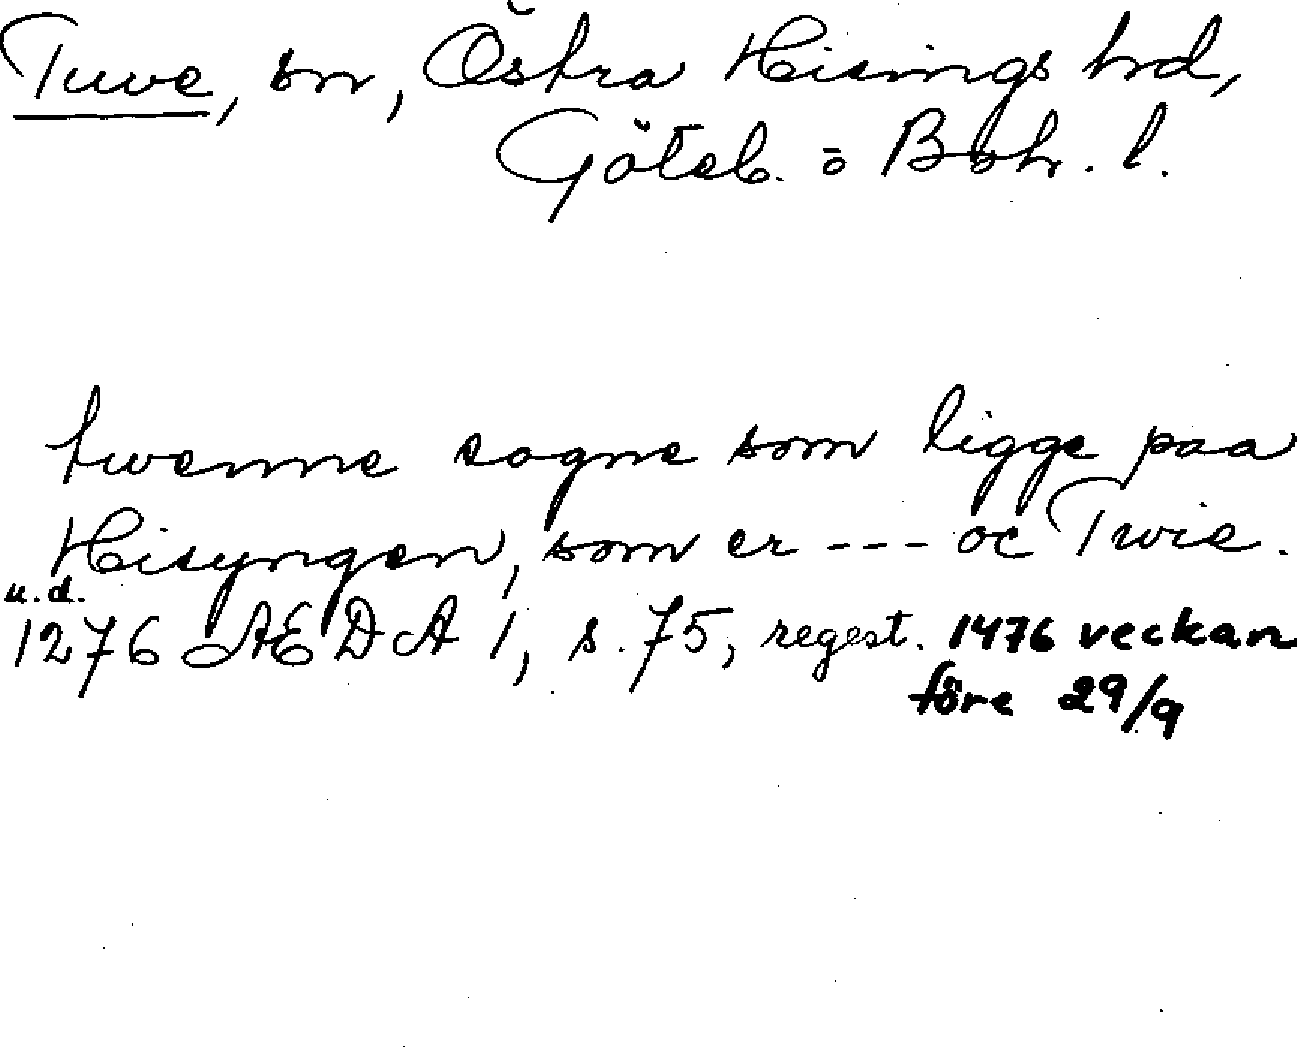 Tuve, sn, Östra Hisings hrd,
Göteb. o Boh. l.
twenne sogne som ligge paa
Hisyngen, som er --- oc Twie.
u.d.
1276 ÆDA 1, s. 75, regest. 1476 veckan
före 29/9